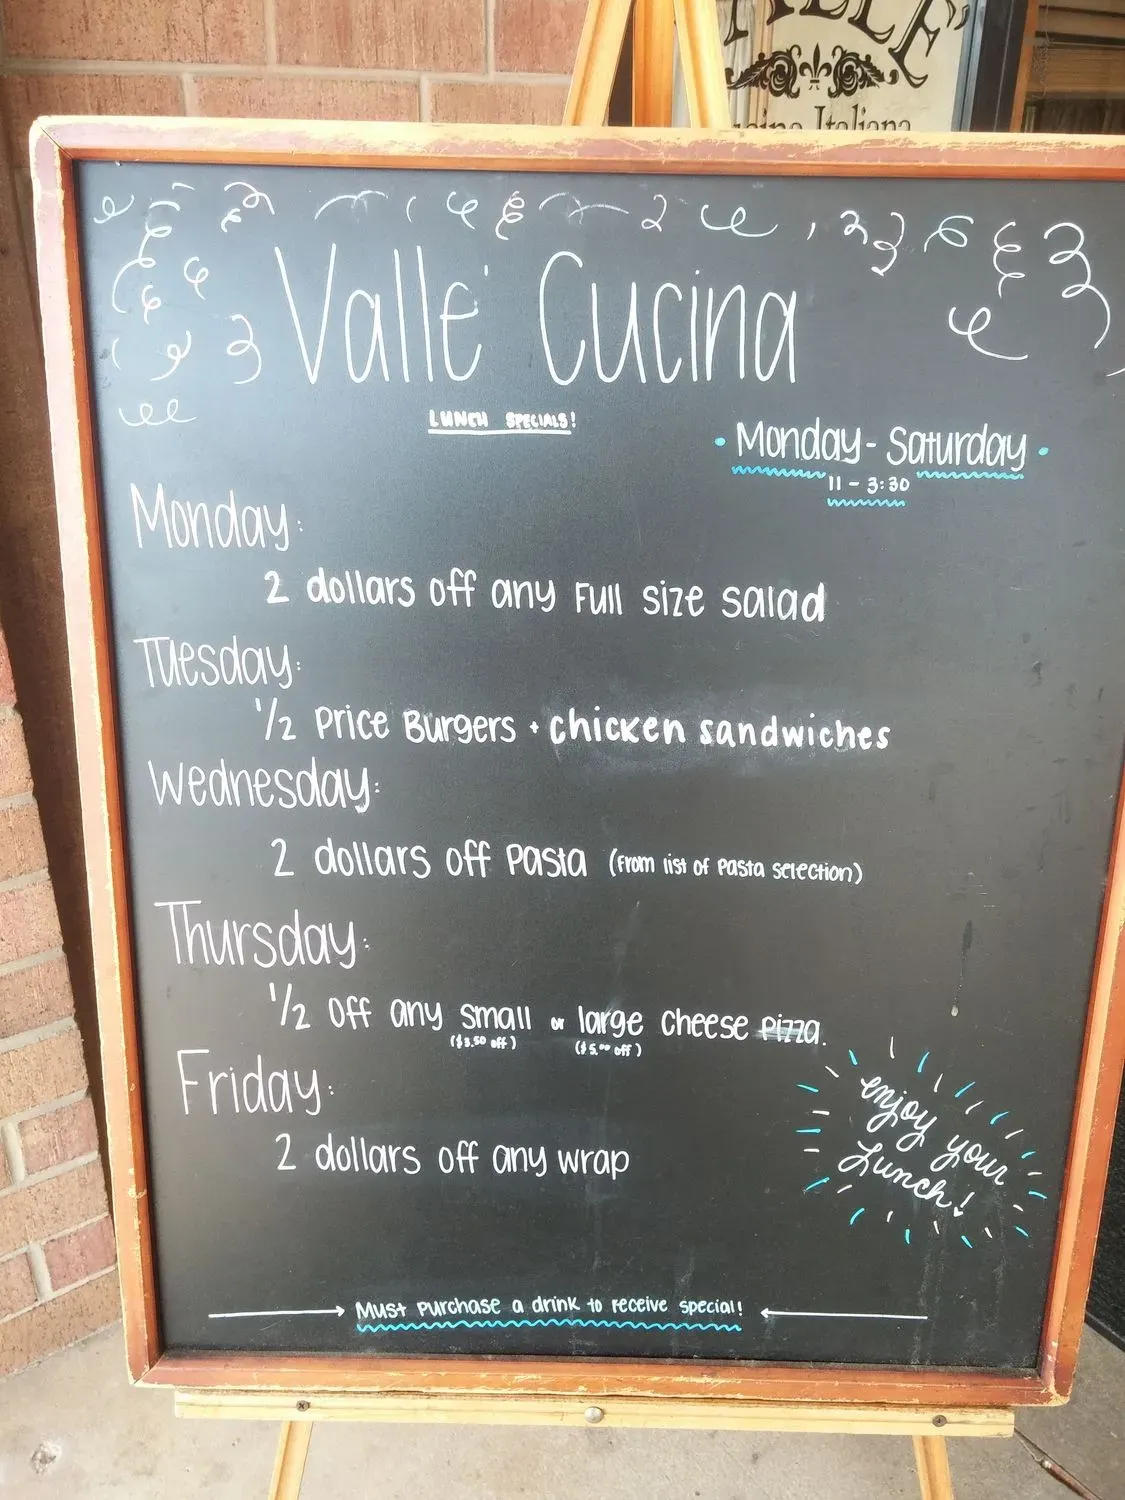 Italiana
Valle' Cucina
LUNCH SPECIALS!
Monday - Saturday
11 - 3:30
Monday:
2 dollars off any Full size salad
Tuesday:
1/2 Price Burgers + chicken sandwiches
Wednesday:
2 dollars off Pasta (From list of Pasta selection)
Thursday:
1/2 off any small or large cheese Pizza.
($3.50 off) ($5.00 off)
Friday:
2 dollars off any wrap
enjoy your
Lunch!
Must Purchase a drink to receive special!